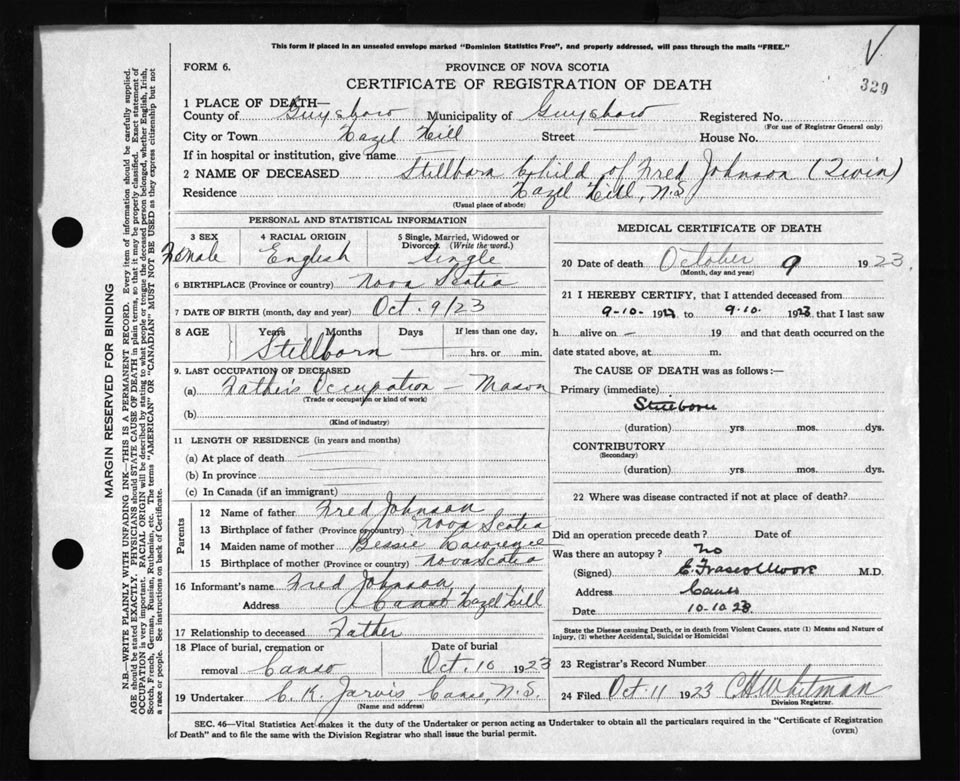 This form if placed in an unsealed envelope marked "Dominion Statistics Free", and properly addressed, will pass through the mails "FREE."
FORM 6.
PROVINCE OF NOVA SCOTIA
CERTIFICATE OF REGISTRATION OF DEATH
329
1 PLACE OF DEATH—
County of Guysboro Municipality of Guysboro Registered No.
(For use of Registrar General only)
City or Town Hazel Hill Street House No.
If in hospital or institution, give name
2 NAME OF DECEASED Stillborn Child of Fred Johnson (Twin)
Residence Hazel Hill, N.S.
(Usual place of abode)
PERSONAL AND STATISTICAL INFORMATION
3 SEX 4 RACIAL ORIGIN 5 Single, Married, Widowed or Divorced (Write the word.)
Female English Single
6 BIRTHPLACE (Province or country) Nova Scotia
7 DATE OF BIRTH (month, day and year) Oct. 9/23
8 AGE Years Months Days If less than one day,
Stillborn — hrs. or min.
9. LAST OCCUPATION OF DECEASED
(a) Father's Occupation — Mason
(Trade or occupation or kind of work)
(b)
(Kind of industry)
11 LENGTH OF RESIDENCE (in years and months)
(a) At place of death
(b) In province
(c) In Canada (if an immigrant)
Parents
12 Name of father Fred Johnson
13 Birthplace of father (Province or country) Nova Scotia
14 Maiden name of mother Bessie Lawrence
15 Birthplace of mother (Province or country) Nova Scotia
16 Informant's name Fred Johnson
Address Canso Hazel Hill
17 Relationship to deceased Father
18 Place of burial, cremation or Date of burial
removal Canso Oct. 10 1923
19 Undertaker C. K. Jarvis Canso, N.S.
(Name and address)
MEDICAL CERTIFICATE OF DEATH
20 Date of death October 9 1923.
(Month, day and year)
21 I HEREBY CERTIFY, that I attended deceased from
9-10- 1923 to 9.10. 1923, that I last saw
h alive on — 19 and that death occurred on the
date stated above, at m.
The CAUSE OF DEATH was as follows:—
Primary (immediate)
Stillborn
(duration) yrs. mos. dys.
CONTRIBUTORY
(Secondary)
(duration) yrs. mos. dys.
22 Where was disease contracted if not at place of death?
Did an operation precede death? Date of
Was there an autopsy? No
(Signed) C. Fraser Moore M.D.
Address Canso
Date 10-10 23.
State the Disease causing Death, or in death from Violent Causes, state (1) Means and Nature of
Injury, (2) whether Accidental, Suicidal or Homicidal
23 Registrar's Record Number
24 Filed Oct 11 1923 C H Whitman
Division Registrar.
SEC. 46—Vital Statistics Act makes it the duty of the Undertaker or person acting as Undertaker to obtain all the particulars required in the "Certificate of Registration
of Death" and to file the same with the Division Registrar who shall issue the burial permit.
(OVER)
MARGIN RESERVED FOR BINDING
N.B.—WRITE PLAINLY WITH UNFADING INK—THIS IS A PERMANENT RECORD. Every item of information should be carefully supplied.
AGE should be stated EXACTLY. PHYSICIANS should STATE CAUSE OF DEATH in plain terms, so that it may be properly classified. Exact statement of
OCCUPATION is very important. RACIAL ORIGIN will be described by stating to what people or tongue the deceased person belonged, whether English, Irish,
Scotch, French, German, Russian, Ruthenian, etc. The terms "AMERICAN" OR "CANADIAN" MUST NOT BE USED as they express citizenship but not
a race or people. See instructions on back of Certificate.